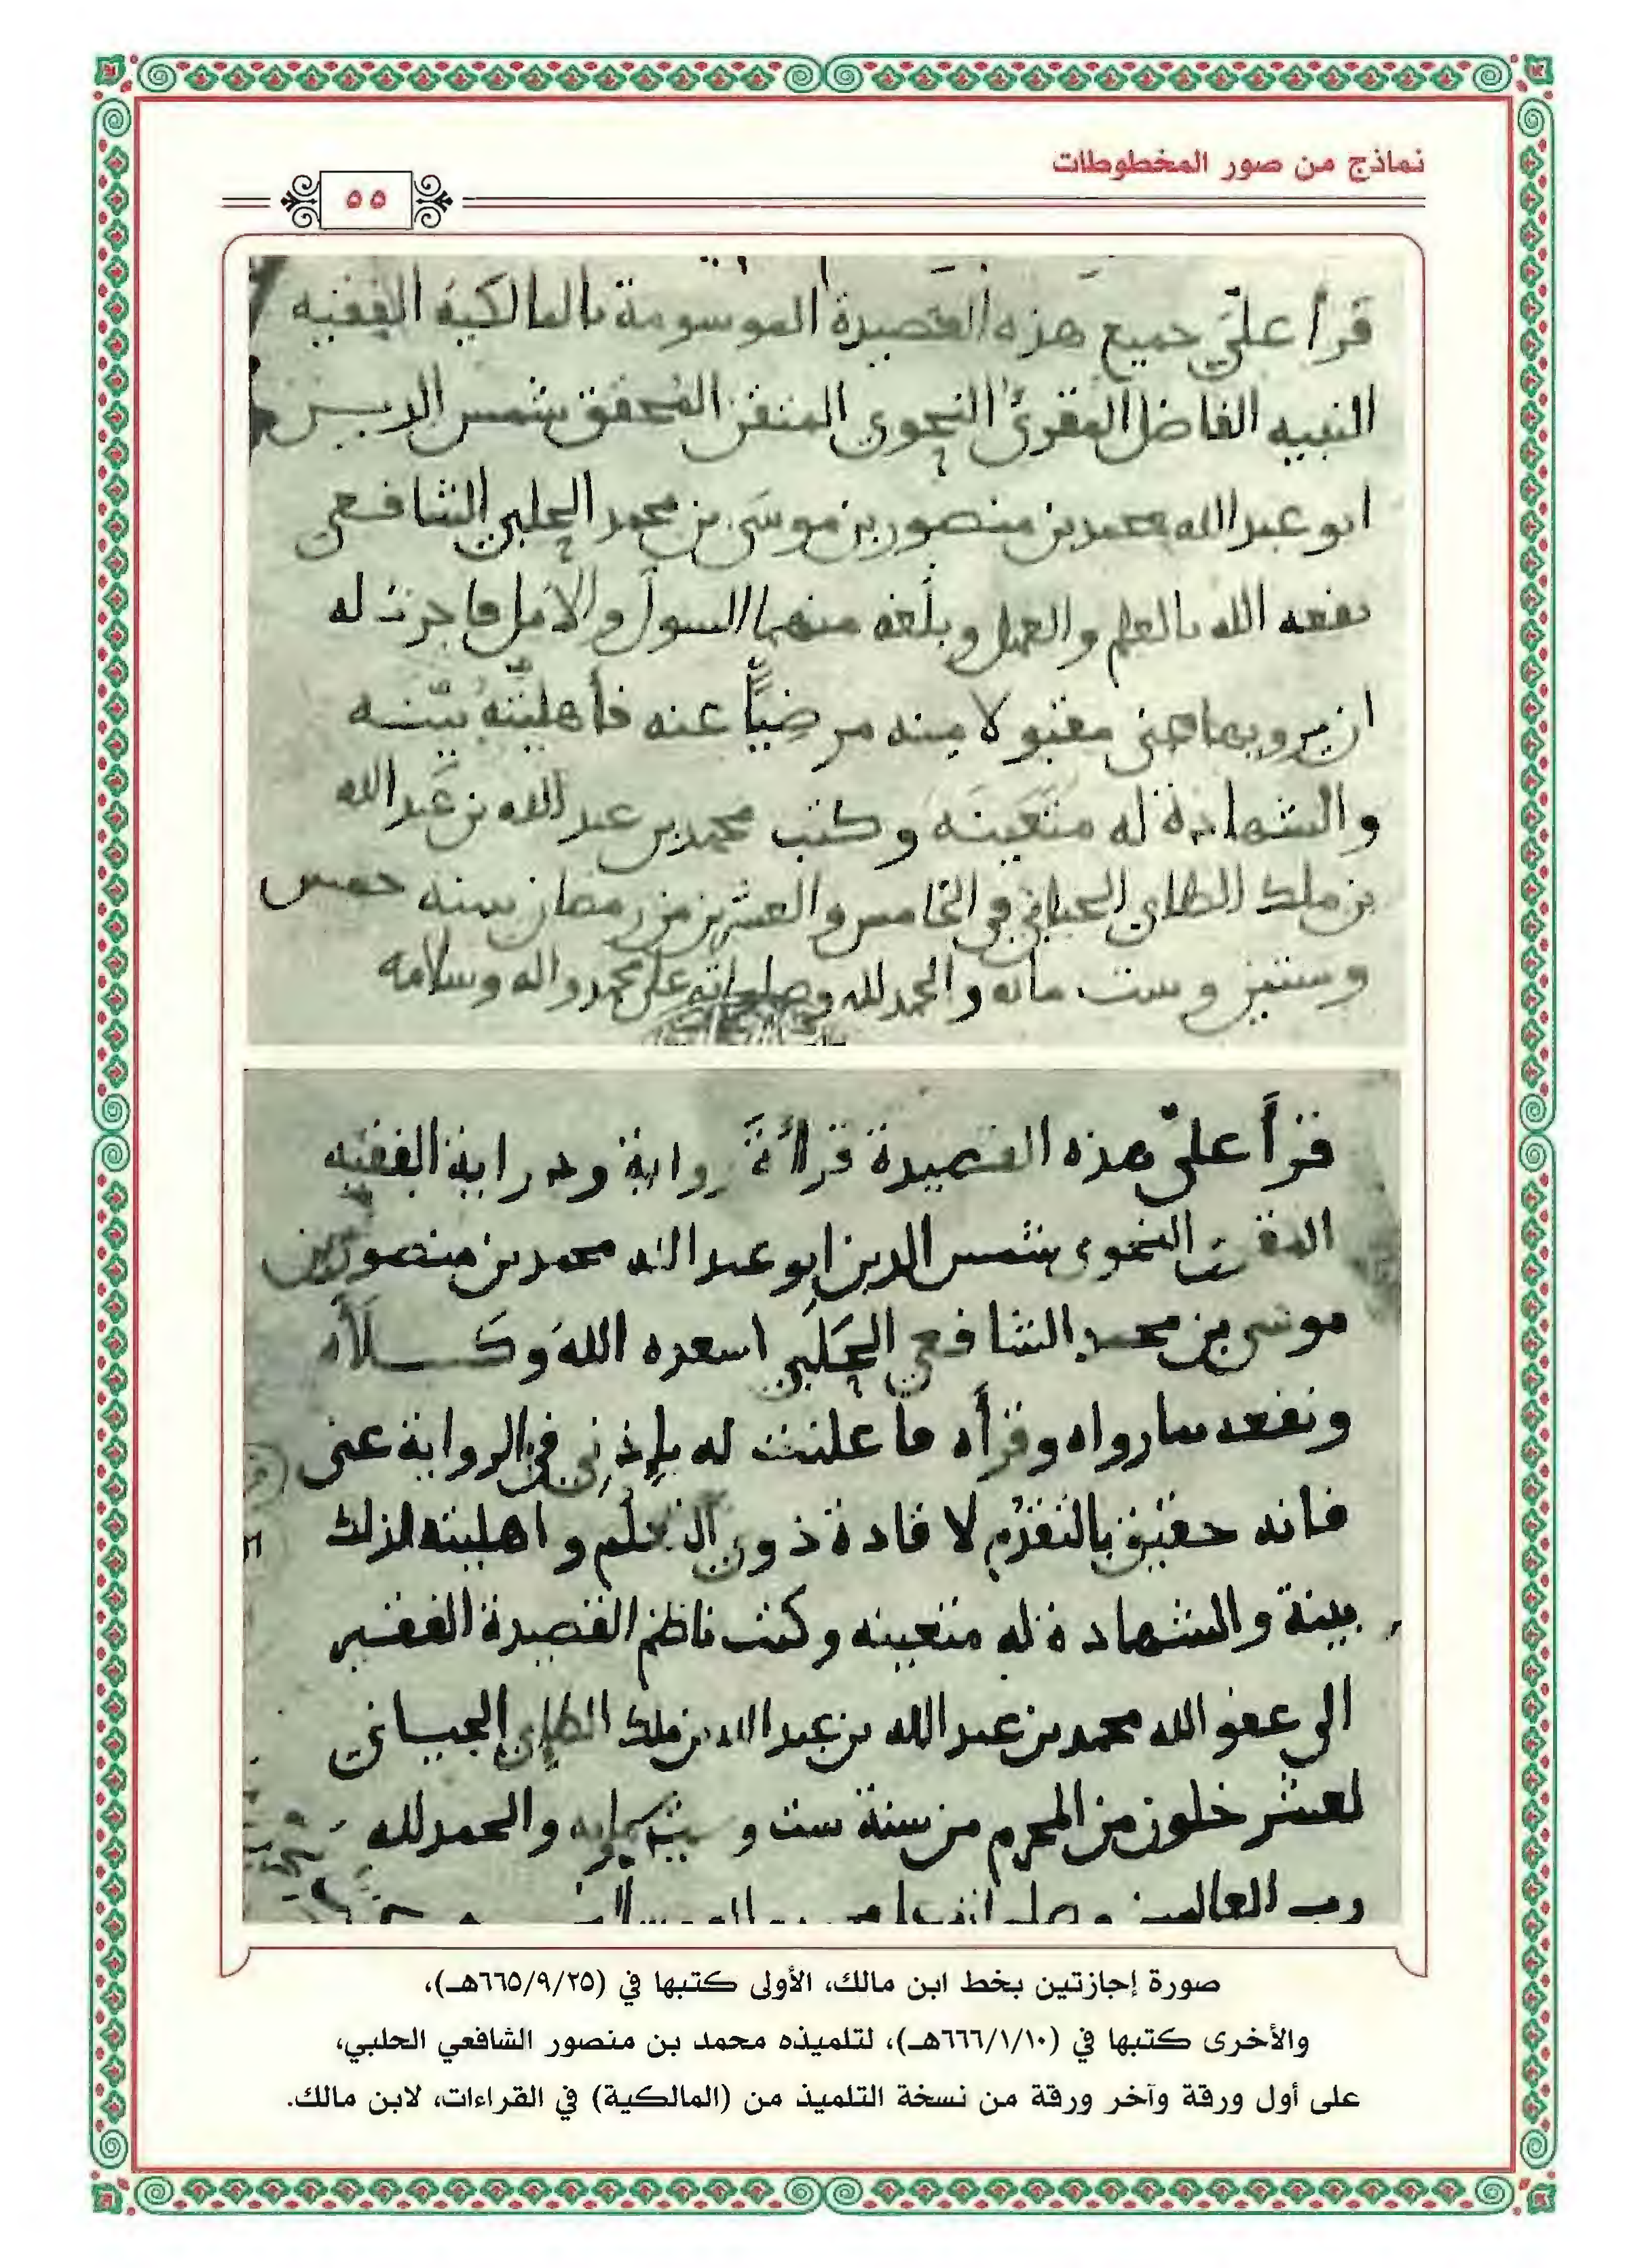 نماذج من صور المخطوطات
٥٥
قرأ عليّ جميع هذه القصيدة الموسومة بالمالكية الفقيه
النبيه الفاضل المقرئ النحوي المتقن المحقق شمس الدين
ابو عبد الله محمد بن منصور بن موسى بن محمد الحلبي الشافعي
نفعه الله بالعلم والعمل وبلّغه منهما السول والامل فاجزت له
ان يرويها عني مقبولا منه مرضيًّا عنه فأهليّته بيّنه
والشهادة له متعيّنه وكتب محمد بن عبد الله بن عبد الله
بن ملك الطاي الجياني في الخامس والعشرين من رمضان سنه خمس
وستين وست مائه والحمد لله وصلواته على محمد واله وسلامه
قرأ عليّ هذه القصيدة قراءةً رواية ودراية الفقيه
المقرئ النحوي شمس الدين ابو عبد الله محمد بن منصور بن
موسى بن محمد الشافعي الحلبي اسعده الله وكلأه
ونفعه بما رواه وقرأه ما علنت له بإذني في الرواية عني
فانه حقيق بالتقدّم لا قادة ذوي التعلّم واهليته لذلك
بينة والشهادة له متعينه وكتب ناظم القصيدة الفقير
الى عفو الله محمد بن عبد الله بن عبد الله بن ملك الطاي الجياني
لعشر خلون من المحرم من سنة ست و والحمد لله
رب العالمين
صورة إجازتين بخط ابن مالك، الأولى كتبها في (٦٦٥/٩/٢٥هـ)،
والأخرى كتبها في (٦٦٦/١/١٠هـ)، لتلميذه محمد بن منصور الشافعي الحلبي،
على أول ورقة وآخر ورقة من نسخة التلميذ من (المالكية) في القراءات، لابن مالك.